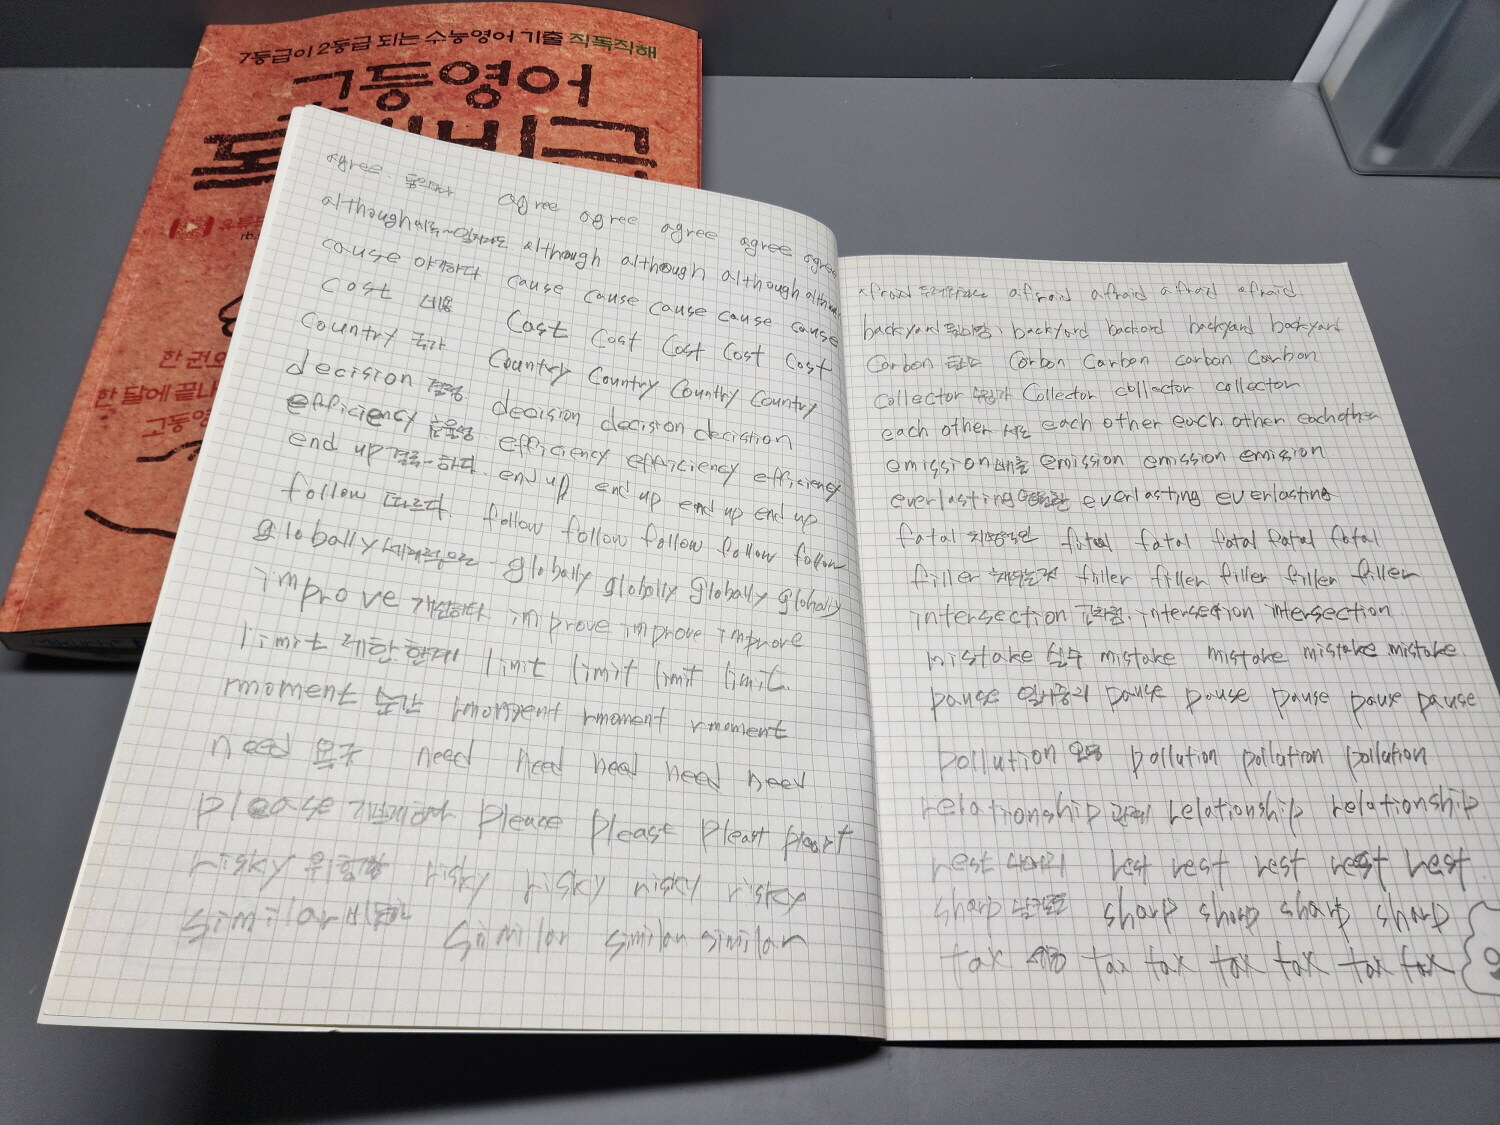 7등급이 2등급 되는 수능영어 기출 직독직해
고등영어
한 권으
한 달에 끝나
고등영
agree 동의하다 agree agree agree agree agree
although 비록~일지라도 although although although although
cause 야기하다 cause cause cause cause cause
cost 비용 cost cost cost cost cost
country 국가 country country country country
decision 결정 decision decision decistion
efficiency 효율성 efficiency efficiency efficiency
end up 결국~하다. end up end up end up end up
follow 따르다. follow follow follow follow follow
globally 세계적으로 globally globally globally globally
improve 개선하다 improve improve improve
limit 제한.한계 limit limit limit limit.
moment 순간 moment moment moment
need 욕구 need need need need need
please 기쁘게하다 please please
risky 위험한 risky risky risky risky
similar 비슷한 similar similar similar
afraid 두려워하는 afraid afraid afraid afraid
backyard 뒷마당 backyard backord backyard backyard
carbon 탄소 carbon carbon carbon carbon
collector 수집가 collector collector collector
each other 서로 each other each other eachother
emission 배출 emission emission emission
everlasting 영원한 everlasting everlasting
fatal 치명적인 fatal fatal fatal fatal fatal
filler 채워주는것 filler filler filler filler filler
intersection 교차점. intersection intersection.
mistake 실수 mistake mistake mistake mistake
pause 일시중지 pause pause pause pause pause
pollution 오염 pollution pollution pollution
relationship 관계 relationship relationship
rest 나머지 rest rest rest rest rest
sharp 날카로운 sharp sharp sharp sharp
tax 세금 tax tax tax tax tax tax